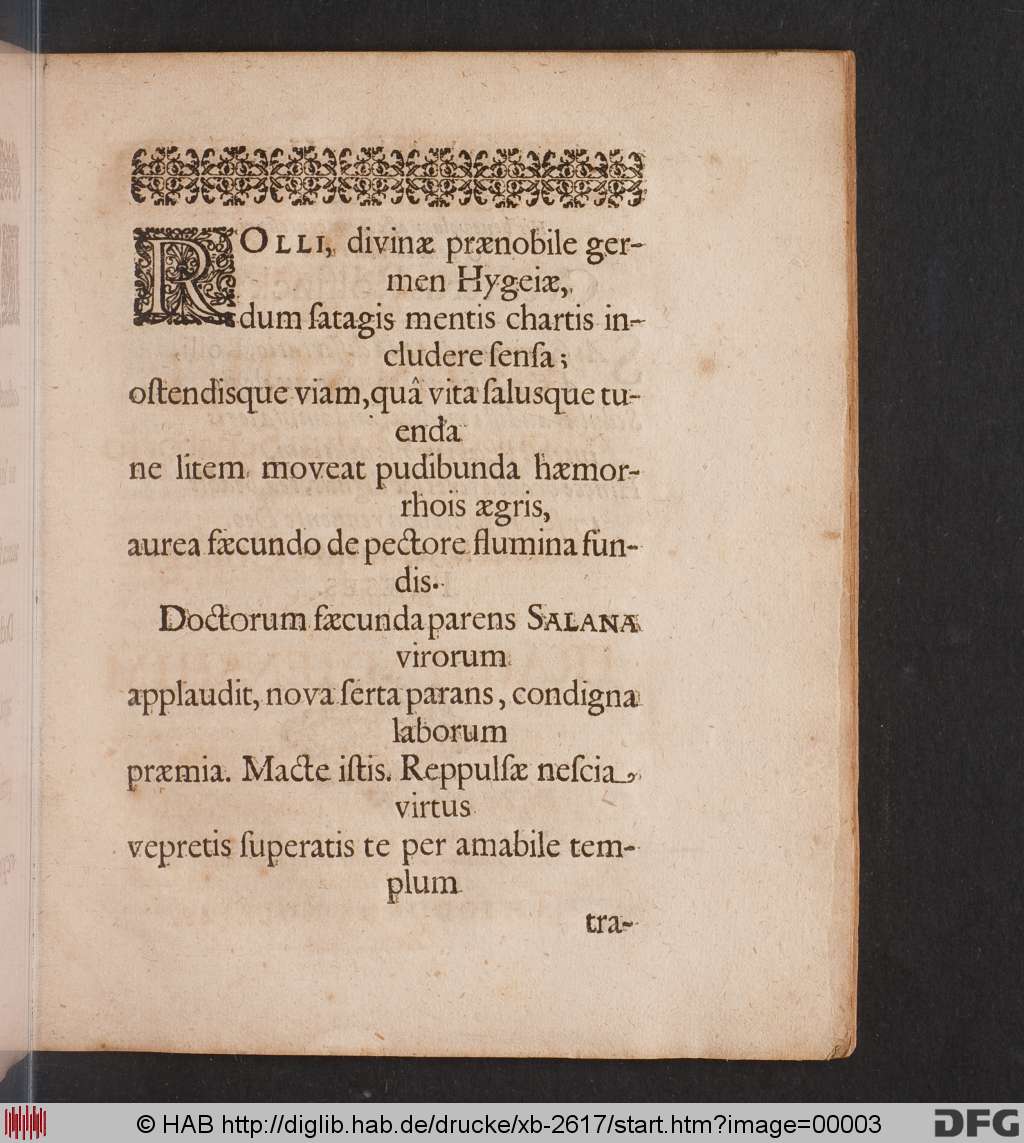 ROLLI, divinæ prænobile ger-
men Hygeiæ,
dum ſatagis mentis chartis in-
cludere ſenſa;
oſtendisque viam, quâ vita ſalusque tu-
enda
ne litem moveat pudibunda hæmor-
rhois ægris,
aurea fæcundo de pectore flumina fun-
dis.
Doctorum fæcunda parens SALANA
virorum
applaudit, nova ſerta parans, condigna
laborum
præmia. Macte iſtis. Reppulſæ neſcia
virtus
vepretis ſuperatis te per amabile tem-
plum
tra-
© HAB http://diglib.hab.de/drucke/xb-2617/start.htm?image=00003
DFG